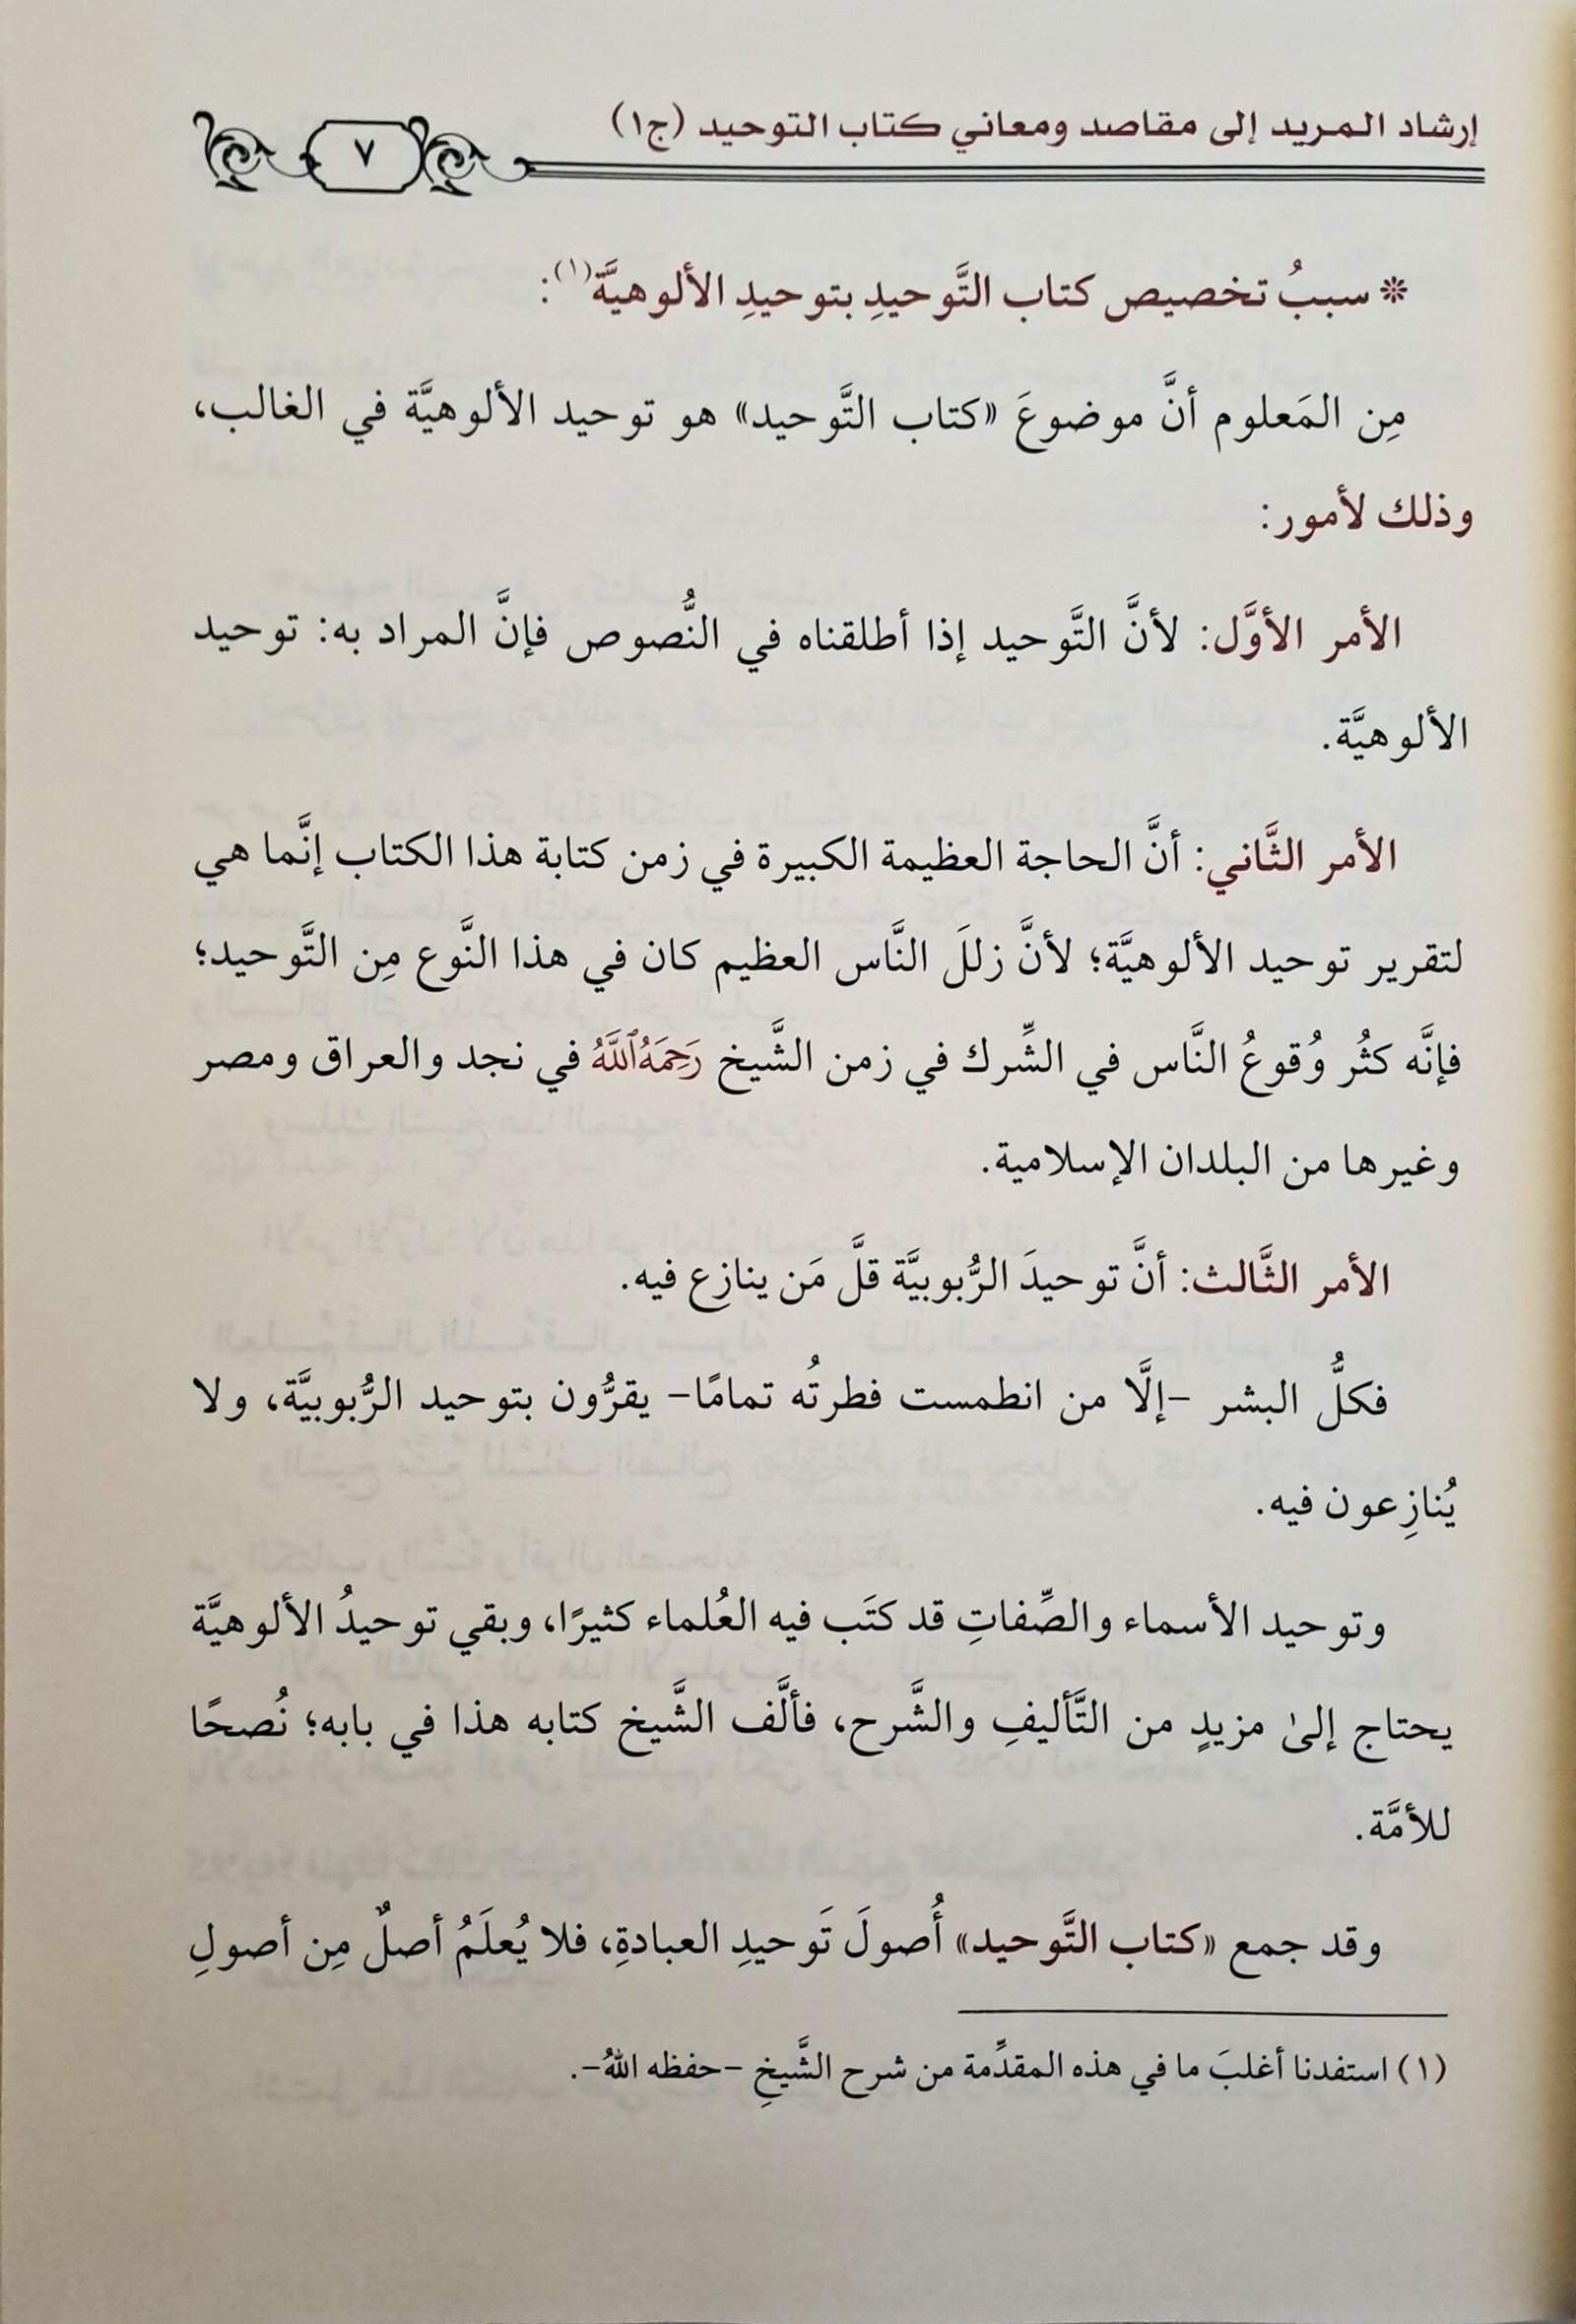 إرشاد المريد إلى مقاصد ومعاني كتاب التوحيد (ج١)
٧
* سببُ تخصيص كتاب التَّوحيدِ بتوحيدِ الألوهيَّة(١):
مِن المَعلوم أنَّ موضوعَ «كتاب التَّوحيد» هو توحيد الألوهيَّة في الغالب،
وذلك لأمور:
الأمر الأوَّل: لأنَّ التَّوحيد إذا أطلقناه في النُّصوص فإنَّ المراد به: توحيد
الألوهيَّة.
الأمر الثَّاني: أنَّ الحاجة العظيمة الكبيرة في زمن كتابة هذا الكتاب إنَّما هي
لتقرير توحيد الألوهيَّة؛ لأنَّ زللَ النَّاس العظيم كان في هذا النَّوع مِن التَّوحيد؛
فإنَّه كثُر وُقوعُ النَّاس في الشِّرك في زمن الشَّيخ رَحِمَهُ ٱللَّهُ في نجد والعراق ومصر
وغيرها من البلدان الإسلامية.
الأمر الثَّالث: أنَّ توحيدَ الرُّبوبيَّة قلَّ مَن ينازع فيه.
فكلُّ البشر -إلَّا من انطمست فطرتُه تمامًا- يقرُّون بتوحيد الرُّبوبيَّة، ولا
يُنازِعون فيه.
وتوحيد الأسماء والصِّفاتِ قد كتَب فيه العُلماء كثيرًا، وبقي توحيدُ الألوهيَّة
يحتاج إلىٰ مزيدٍ من التَّأليفِ والشَّرح، فألَّف الشَّيخ كتابه هذا في بابه؛ نُصحًا
للأمَّة.
وقد جمع «كتاب التَّوحيد» أُصولَ تَوحيدِ العبادةِ، فلا يُعلَمُ أصلٌ مِن أصولِ
(١) استفدنا أغلبَ ما في هذه المقدِّمة من شرح الشَّيخِ -حفظه اللهُ-.